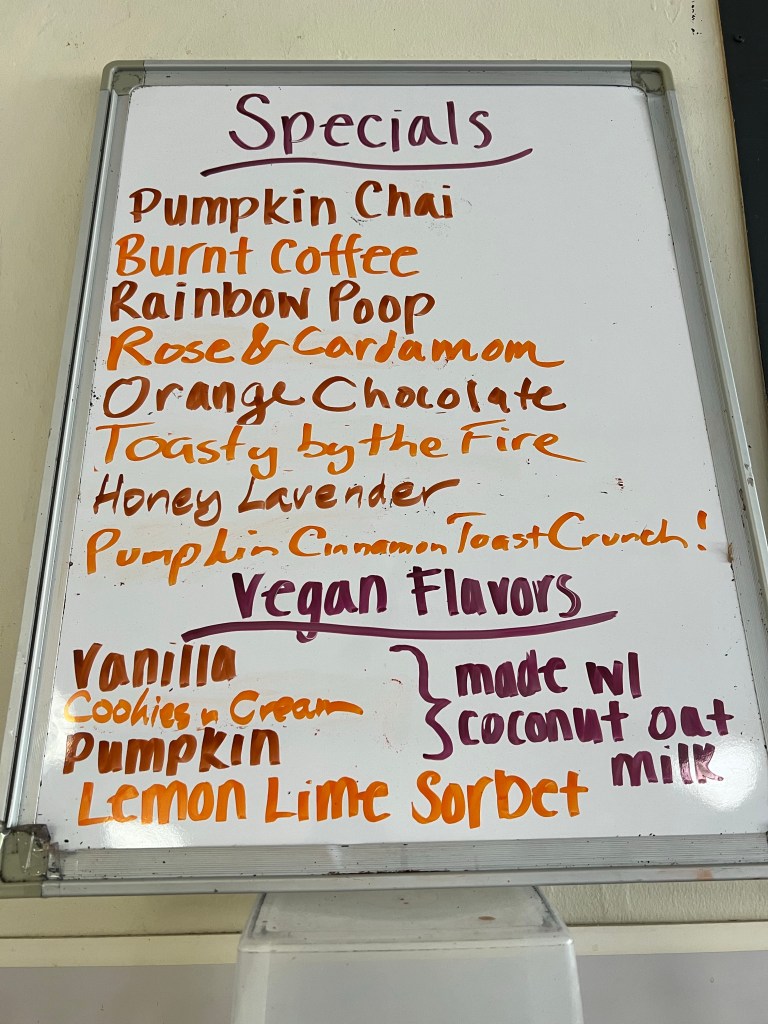 Specials
Pumpkin Chai
Burnt Coffee
Rainbow Poop
Rose & Cardamom
Orange Chocolate
Toasty by the Fire
Honey Lavender
Pumpkin Cinnamon Toast Crunch!
Vegan Flavors
Vanilla
Cookies n Cream
Pumpkin
} made w/
coconut oat
milk
Lemon Lime Sorbet